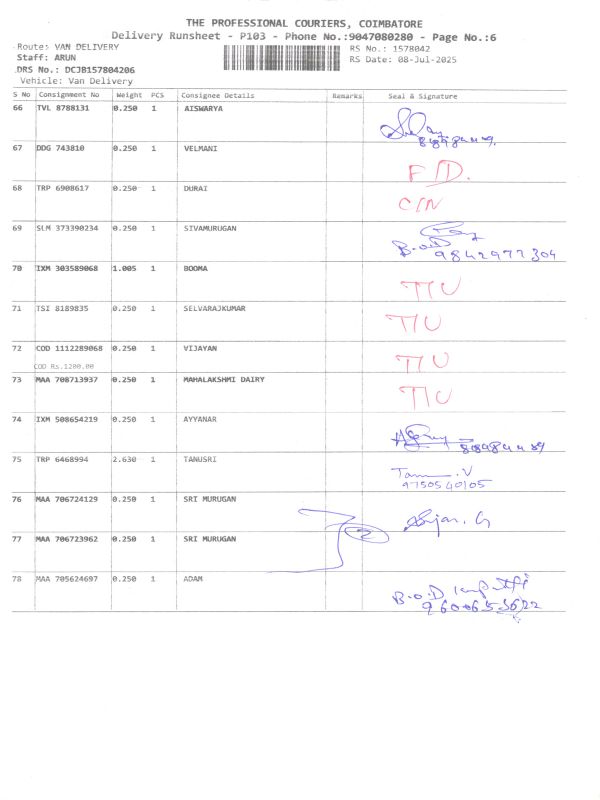 THE PROFESSIONAL COURIERS, COIMBATORE
Delivery Runsheet - P103 - Phone No.:9047080280 - Page No.:6
Route: VAN DELIVERY RS No.: 1578042
Staff: ARUN RS Date: 08-Jul-2025
DRS No.: DCJB157804206
Vehicle: Van Delivery
S No Consignment No Weight PCS Consignee Details Remarks Seal & Signature
66 TVL 8788131 0.250 1 AISWARYA
67 DDG 743810 0.250 1 VELMANI F/D.
68 TRP 6908617 0.250 1 DURAI C/N
69 SLM 373390234 0.250 1 SIVAMURUGAN
B.O.D
9842977304
70 IXM 303589068 1.005 1 BOOMA T/U
71 TSI 8189835 0.250 1 SELVARAJKUMAR T/U
72 COD 1112289068 0.250 1 VIJAYAN T/U
COD Rs.1200.00
73 MAA 708713937 0.250 1 MAHALAKSHMI DAIRY T/U
74 IXM 508654219 0.250 1 AYYANAR
75 TRP 6468994 2.630 1 TANUSRI
9750540105
76 MAA 706724129 0.250 1 SRI MURUGAN
2
77 MAA 706723962 0.250 1 SRI MURUGAN
78 MAA 705624697 0.250 1 ADAM
B.O.D